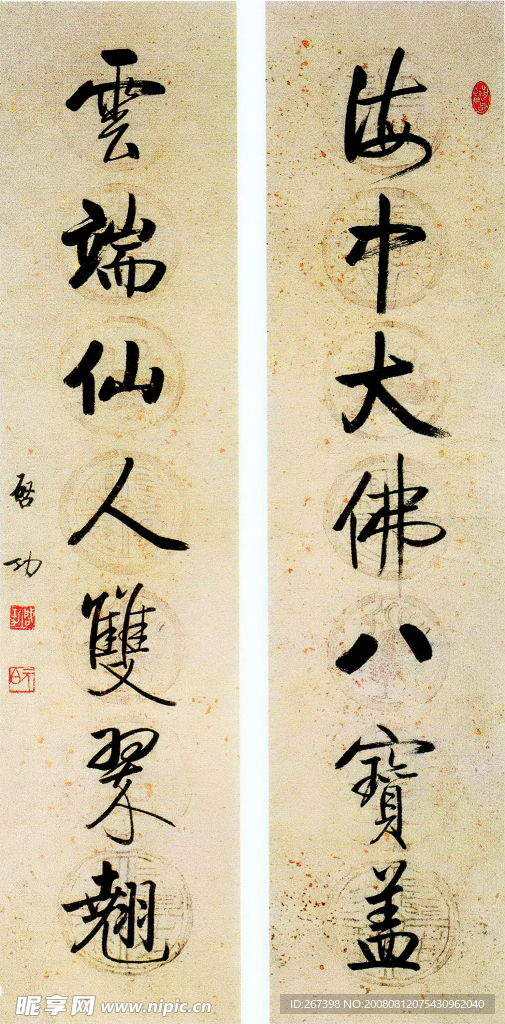 海中大佛八寶盖
雲端仙人雙翠翹
啓功
昵享网 www.nipic.cn
ID:267398 NO:20080812075430962040